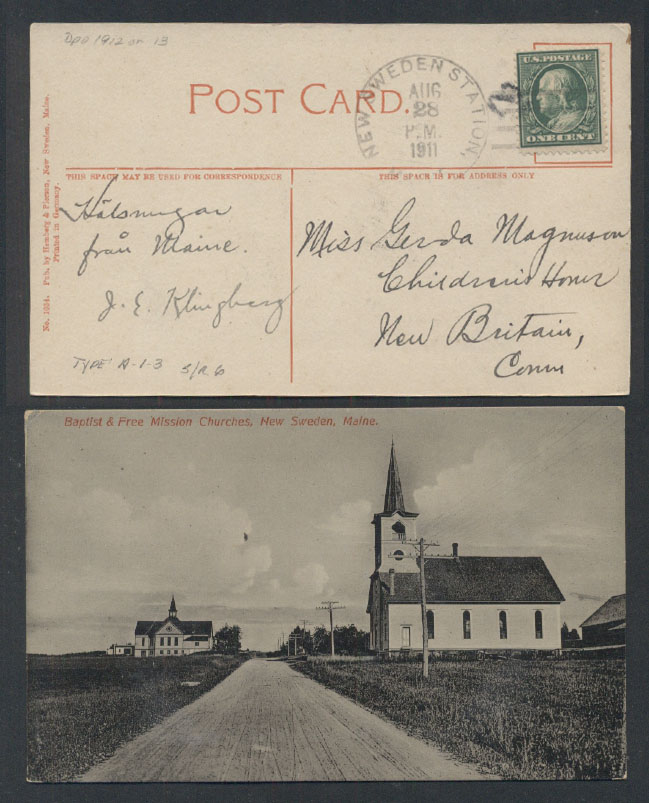 Dpo 1912 or 13
POST CARD.
NEW SWEDEN STATION
AUG
28
P.M.
1911
U.S. POSTAGE
ONE CENT
THIS SPACE MAY BE USED FOR CORRESPONDENCE
THIS SPACE IS FOR ADDRESS ONLY
No. 1034. Pub. by Hemberg & Pierson, New Sweden, Maine.
Printed in Germany.
Hälsningar
från Maine.
J. E. Klingberg
Miss Gerda Magnuson
Children's Home
New Britain,
Conn
TYPE: A-1-3 S/R 6
Baptist & Free Mission Churches, New Sweden, Maine.